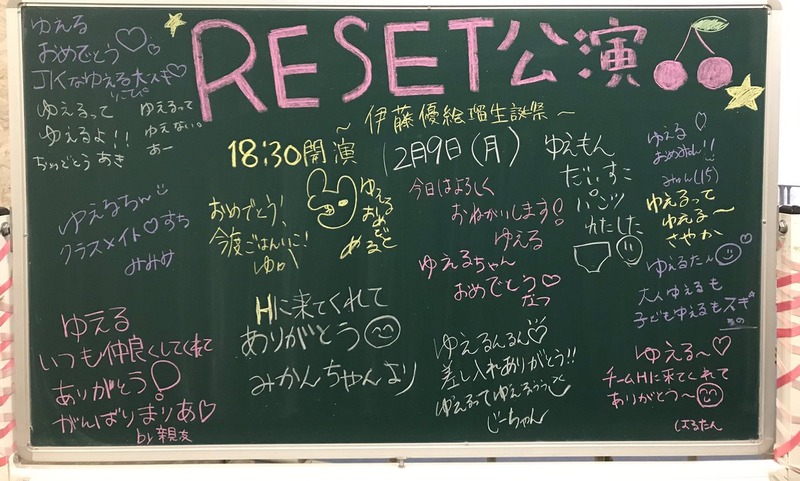 RESET公演
～伊藤優絵瑠生誕祭～
18:30開演
12月9日(月)
ゆえる
おめでとう♡
JKなゆえる大スキ♡
りこぴ
ゆえるって
ゆえるよ!!
ちゅめでとう あき
ゆえるって
ゆえない。
あー
ゆえるちん
クラスメイト♡すち
みみみ
おめでとう!
今度ごはんいこ!
ゆいり
ゆえる
おめ
でと
める
今日はよろしく
おねがいします!
ゆえる
ゆえるちゃん
おめでとう♡
なつ
ゆえもん
だいすこ
パンツ
わたした
ゆえる♡
おめみん!!
みゅん(15)
ゆえるって
ゆえる～
さやか
ゆえるたん
大人ゆえるも
子どもゆえるもスキ
ゆえる
いつも仲良くしてくれて
ありがとう!
がんばりまりあ♡
by 親友
Hに来てくれて
ありがとう
みかんちゃんより
ゆえるんるん♡
差し入れありがとう!!
ゆえるってゆえるううう
じーちゃん
ゆえる～♡
チームHに来てくれて
ありがとう～
はるたん